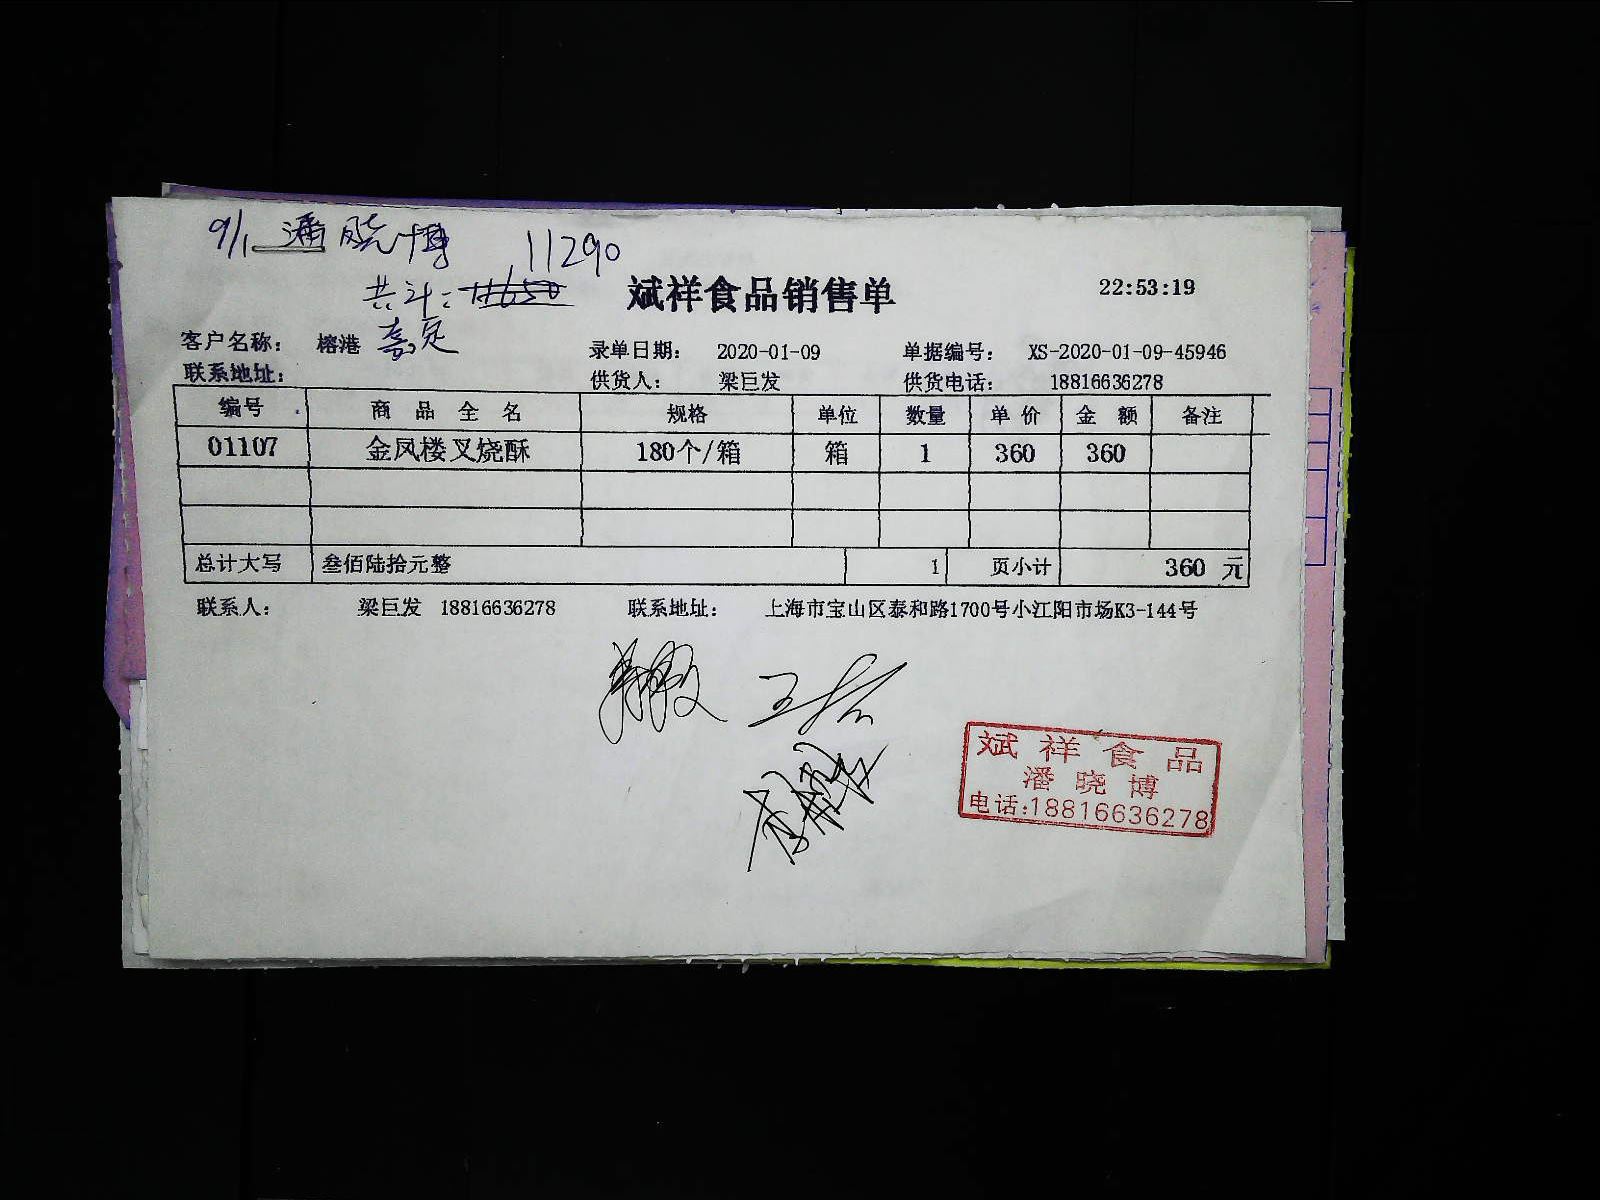 9/1 潘晓博 11290
共计:
斌祥食品销售单 22:53:19
客户名称: 榕港 嘉定 录单日期: 2020-01-09 单据编号: XS-2020-01-09-45946
联系地址: 供货人: 梁巨发 供货电话: 18816636278
编号 商品全名 规格 单位 数量 单价 金额 备注
01107 金凤楼叉烧酥 180个/箱 箱 1 360 360
总计大写 叁佰陆拾元整 1 页小计 360 元
联系人: 梁巨发 18816636278 联系地址: 上海市宝山区泰和路1700号小江阳市场K3-144号
斌祥食品
潘晓博
电话:18816636278